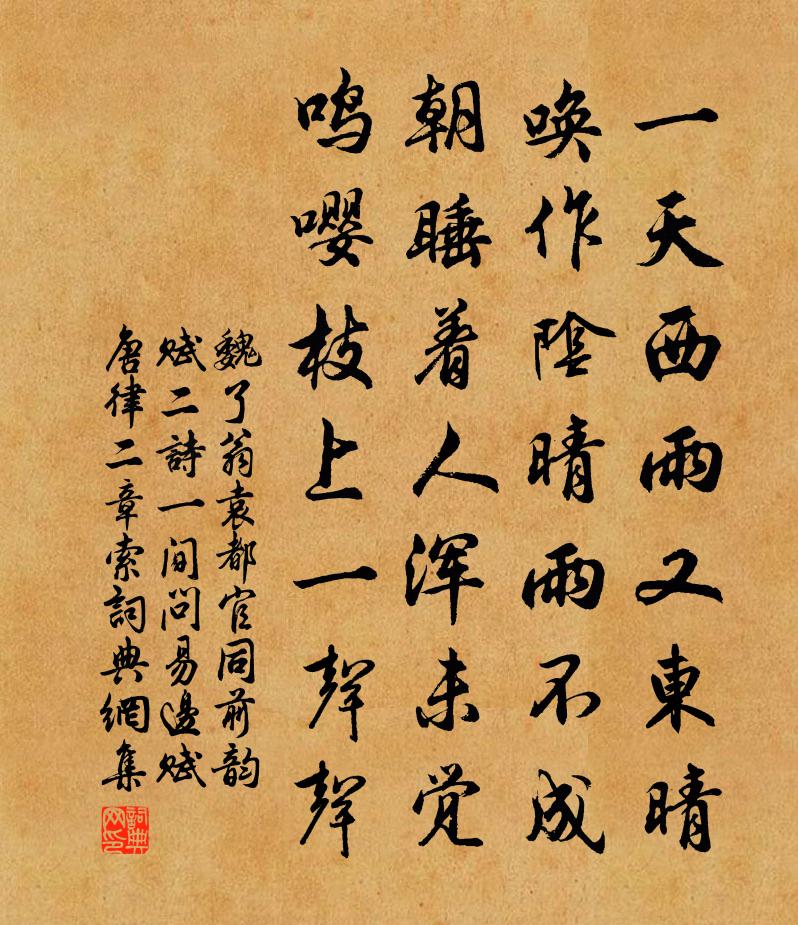 一天西雨又東晴
喚作陰晴雨不成
朝睡着人浑未觉
鸣嘤枝上一聲聲
魏了翁袁都官同前韵
赋二詩一间问易邊赋
唐律二章索詞典網集
詞典网印